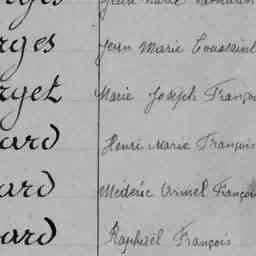 rges Jean Marie Toussaint
rget Marie Joseph Franço
ard Henri Marie François
ard Médéric Armel Françoi
ard Raphaël François